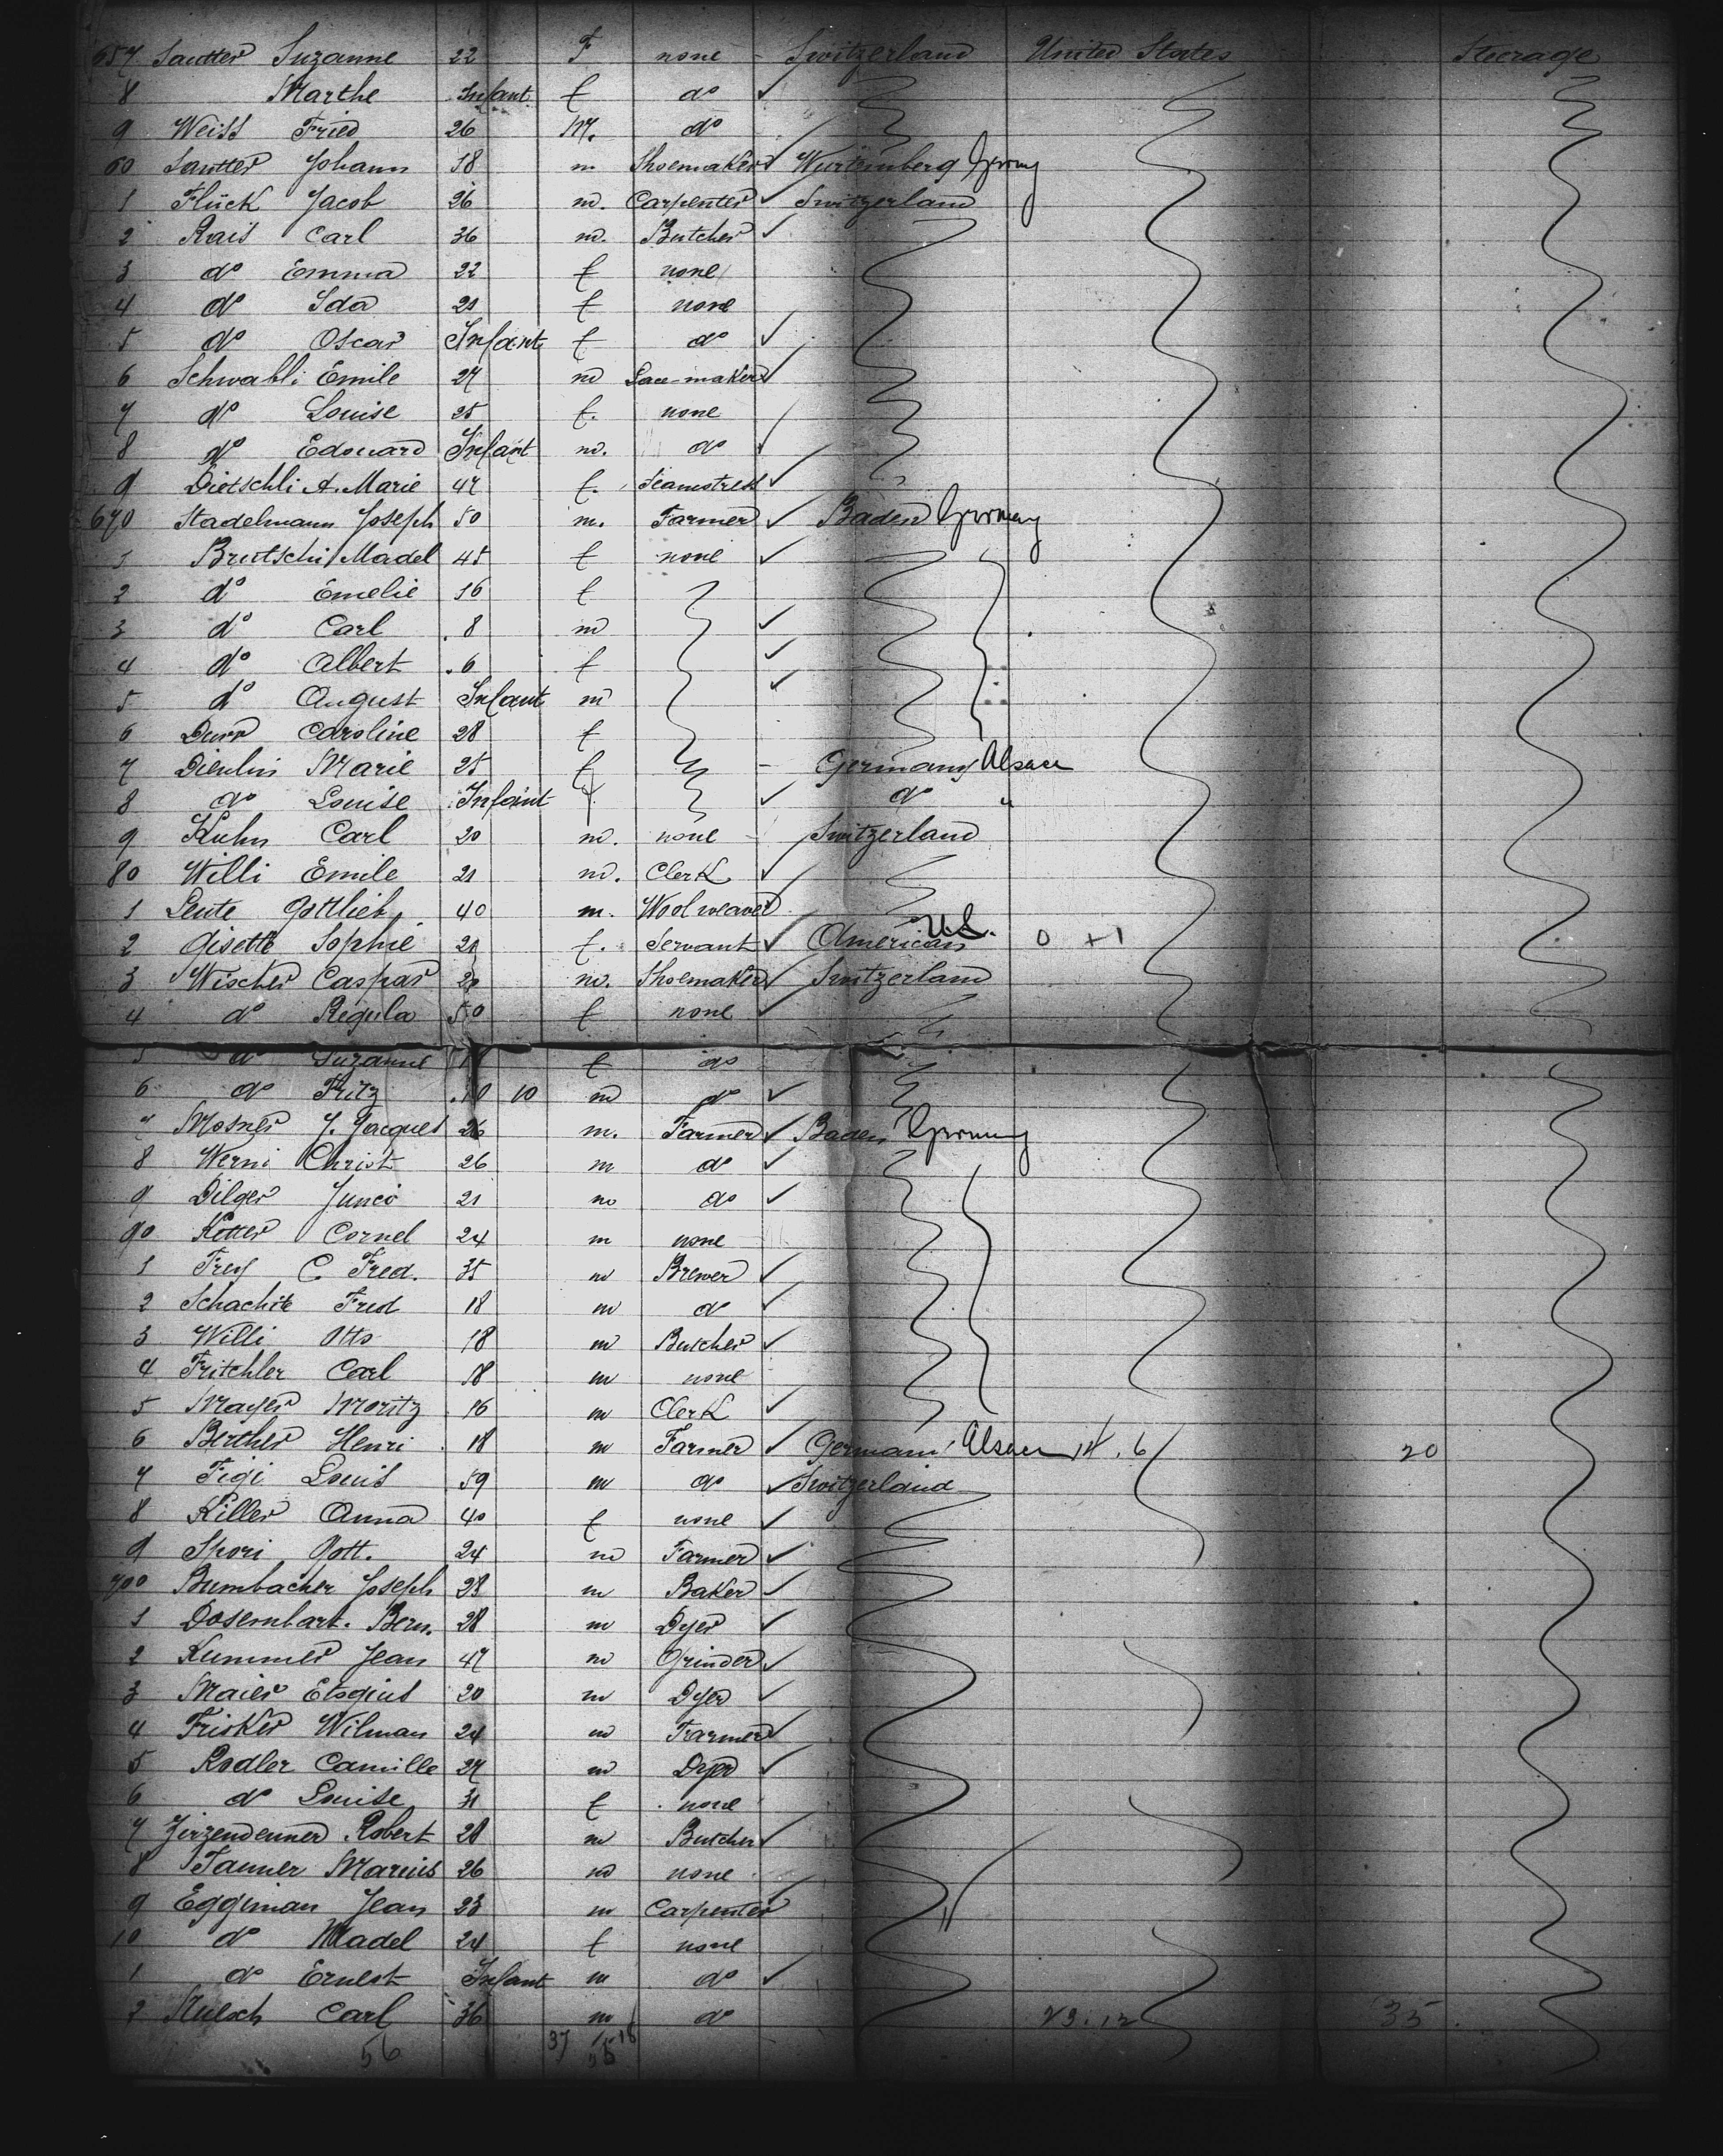 657 Sautter Suzanne 22 F none - Switzerland United States Steerage
8 Marthe Infant f do
9 Weiss Fried 26 M. do
60 Sautter Johann 18 m Shoemaker Würtemberg Germany
1 Flück Jacob 26 m. Carpenter Switzerland
2 Rais Carl 36 m. Butcher
3 do Emma 22 f none
4 do Ida 21 f none
5 do Oscar Infant f do
6 Schwabli Emile 27 m Lace-maker
7 do Louise 25 f. none
8 do Edouard Infant m. do
9 Dietschli A. Marie 47 f. Seamstress
670 Stadelmann Joseph 50 m. Farmer Baden Germany
1 Brutschi Madel 45 f none
2 do Emelie 16 f
3 do Carl 8 m
4 do Albert 6 f
5 do August Infant m
6 Durr Caroline 28 f
7 Marie 25 f - Germany Alsace
8 do Louise Infant f do "
9 Kuhn Carl 20 m. none - Switzerland
80 Willi Emile 21 m. Clerk
1 Leute Gottlieb 40 m. Wool weaver
2 Gisette Sophie 21 f. Servant American U.S. 0 +1
3 Wischer Caspar 20 m. Shoemaker Switzerland
4 do Regula 50 f none
5 do Suzanne f do
6 do Fritz 10 10 m do
7 Mosner J. Jacques 26 m. Farmer Baden Germany
8 Werni Christ 26 m do
9 Dilger 21 m do
90 Ketter Cornel 24 m none
1 Frey C. Fred. 35 m Brewer
2 Schachite Fred 18 m do
3 Willi Otto 18 m Butcher
4 Fritchler Carl 18 m none
5 Mayer Moritz 16 m Clerk
6 Berther Henri 18 m Farmer Germany Alsace 14.6 20
7 Figi Louis 59 m do Switzerland
8 Killer Anna 40 f none
9 Spori Gott. 24 m Farmer
700 Bumbacher Joseph 23 m Baker
1 Dosembart. Bern. 28 m Dyer
2 Kummer Jean 47 m Grinder
3 Maier 20 m Dyer
4 Frisker Wilman 24 m Farmer
5 Rodler Camille 27 m Dyer
6 do Louise 31 f none
7 Robert 28 m Butcher
8 Tanner Marius 26 m none
9 Eggiman Jean 23 m Carpenter
10 do Madel 24 f none
1 do Ernest Infant m do
2 Carl 36 m do 29.12 35
56 37 18